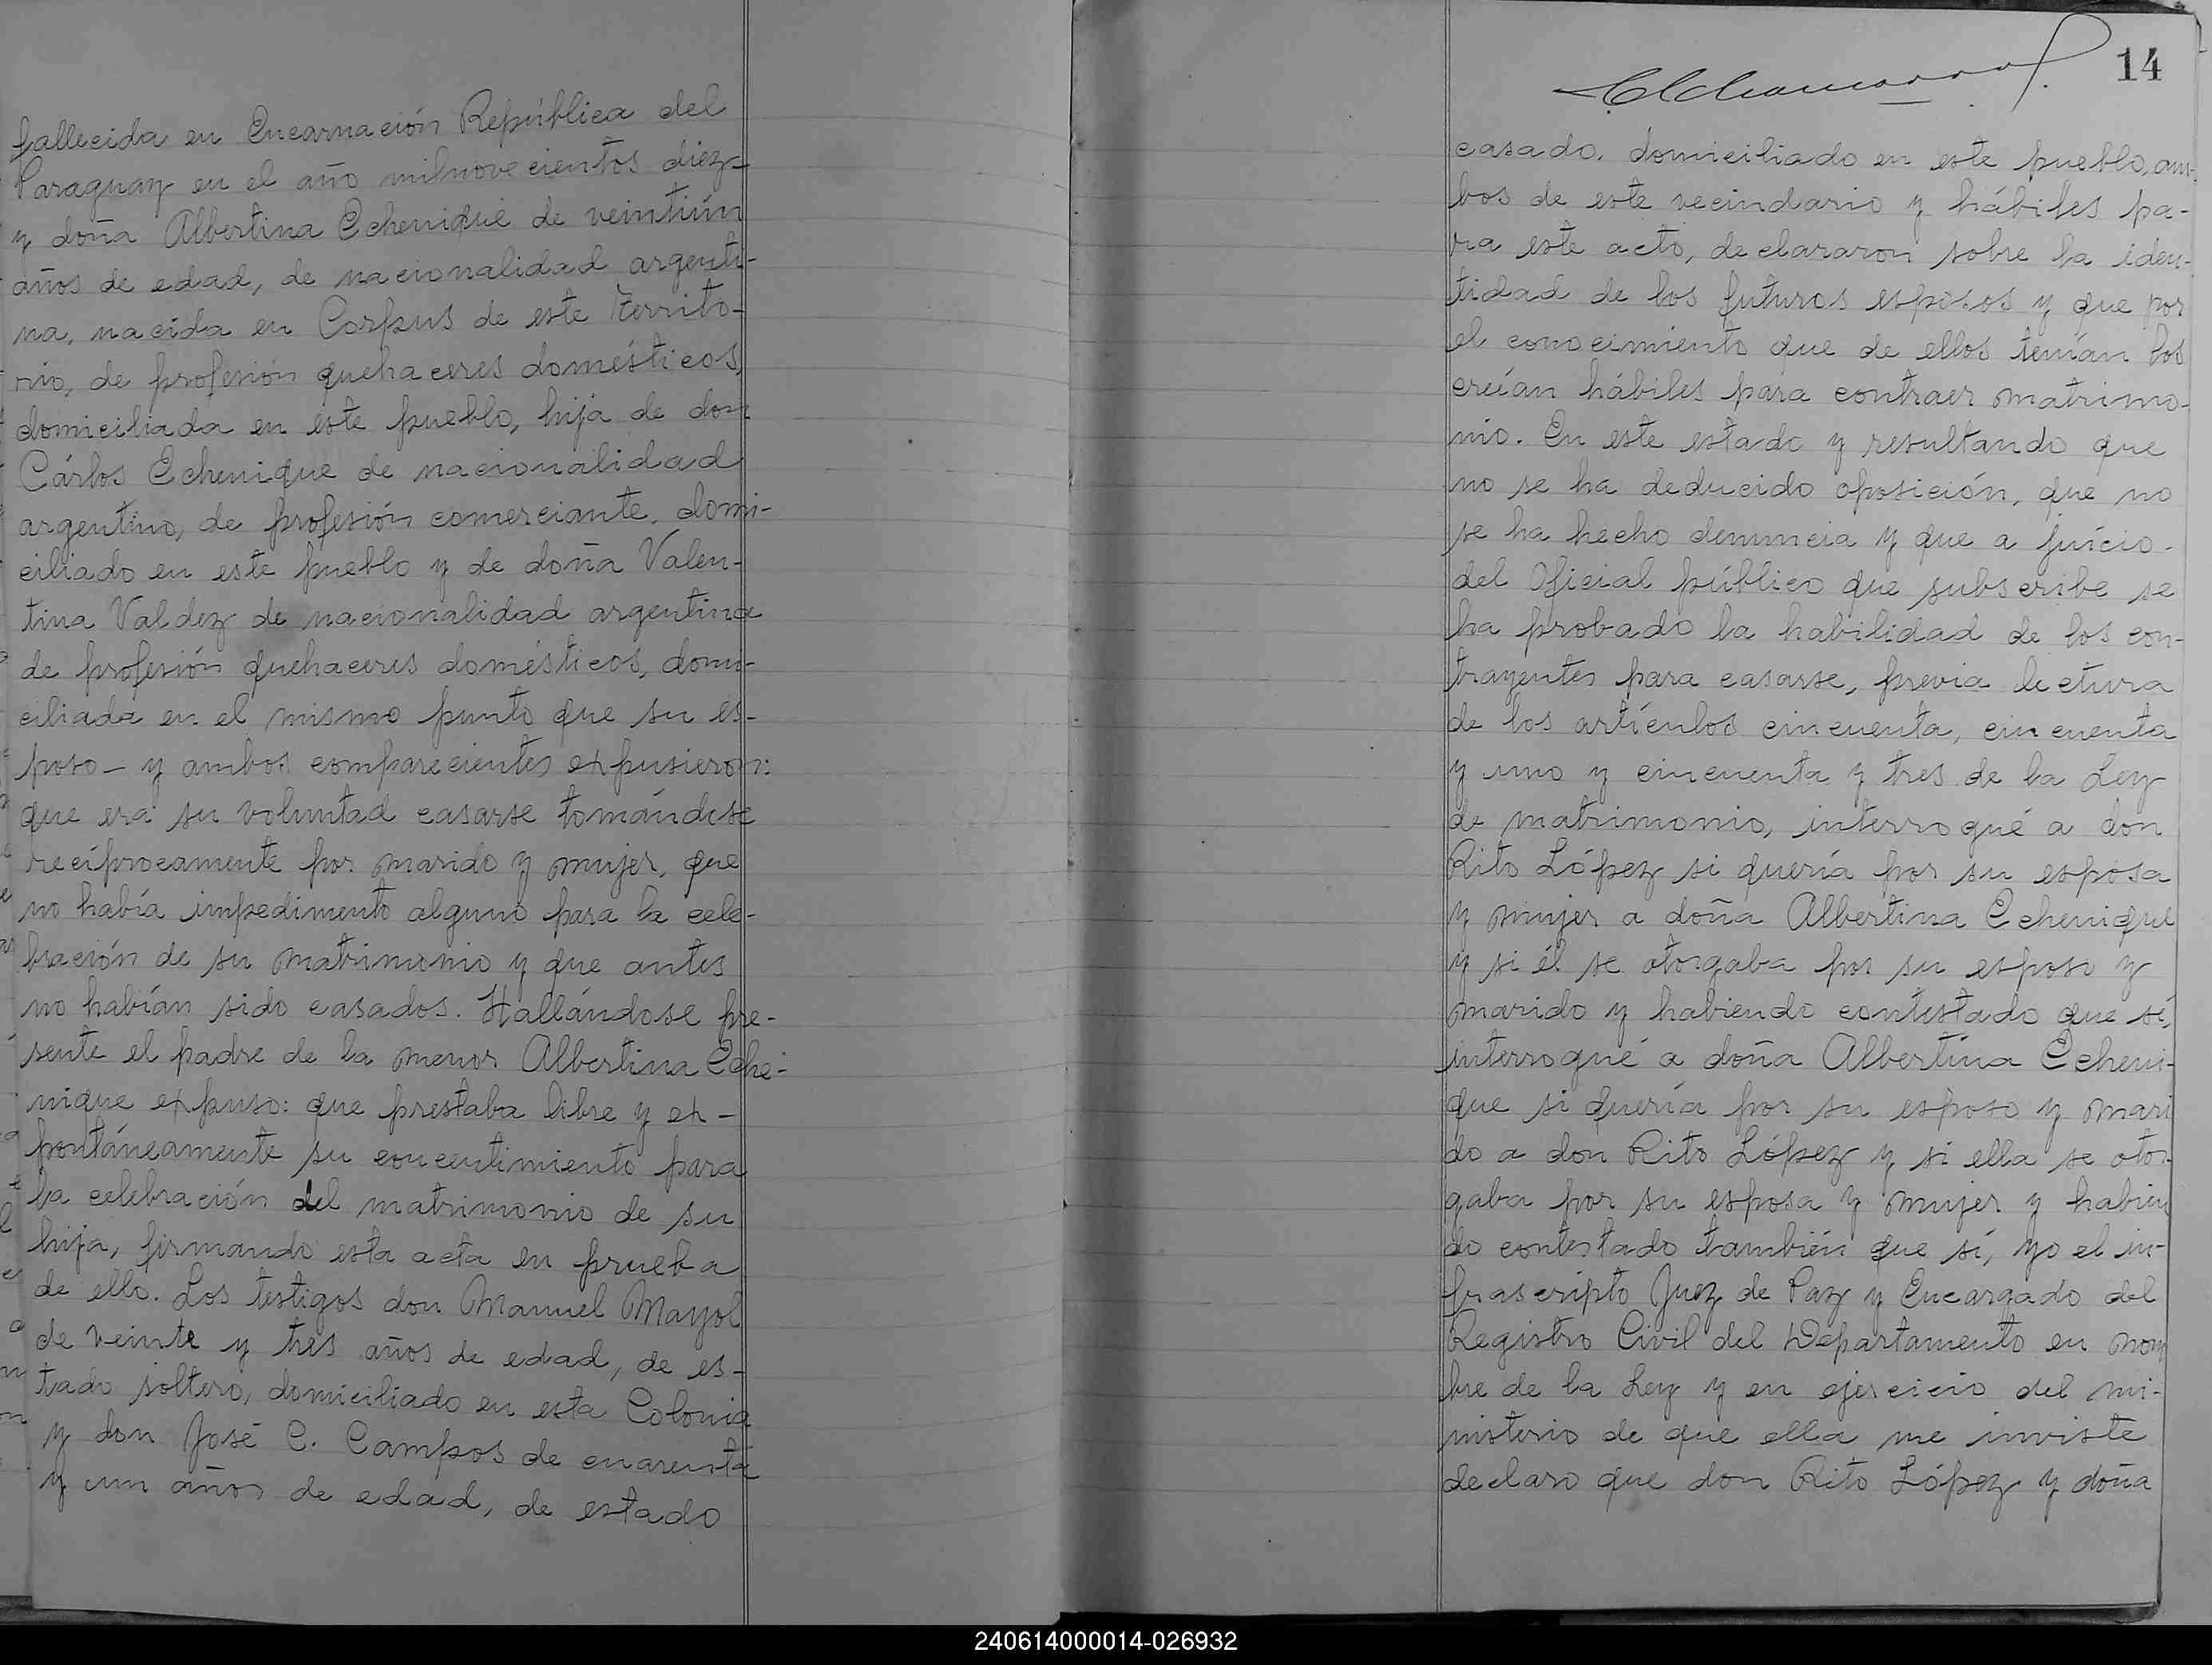 fallecida en Encarnación República del
Paraguay en el año milnovecientos diez-
y doña Albertina Echenique de veintiún
años de edad, de nacionalidad argenti-
na, nacida en Corpus de este Territo-
rio, de profesión quehaceres domésticos,
domiciliada en este pueblo, hija de don
Cárlos Echenique de nacionalidad
argentino, de profesión comerciante, domi-
ciliado en este pueblo y de doña Valen-
tina Valdez de nacionalidad argentina
de profesión quehaceres domésticos, domi-
ciliada en el mismo punto que su es-
poso- y ambos comparecientes expusieron:
que era su voluntad casarse tomándose
recíprocamente por marido y mujer, que
no había impedimento alguno para la cele-
bración de su matrimonio y que antes
no habían sido casados. Hallándose pre-
sente el padre de la menor Albertina Eche-
nique expuso: que prestaba libre y ex-
pontáneamente su concentimiento para
la celebración del matrimonio de su
hija, firmando esta acta en prueba
de ello. Los testigos don Manuel Mayol
de veinte y tres años de edad, de es-
tado soltero, domiciliado en esta Colonia
y don José C. Campos de cuarenta
y un años de edad, de estado
14
casado, domiciliado en este pueblo, am-
bos de este vecindario y hábiles pa-
ra este acto, declararon sobre la iden-
tidad de los futuros esposos y que por
el conocimiento que de ellos tenían los
creían hábiles para contraer matrimo-
nio. En este estado y resultando que
no se ha deducido oposición, que no
se ha hecho denuncia y que a juicio-
del Oficial público que subscribe se
ha probado la habilidad de los con-
trayentes para casarse, previa lectura
de los artículos cincuenta, cincuenta
y uno y cincuenta y tres de la Ley
de matrimonio, interrogué a don
Rito López si quería por su esposa
y mujer a doña Albertina Echenique
y si él se otorgaba por su esposo y
marido y habiendo contestado que sí,
interrogué a doña Albertina Echeni-
que si quería por su esposo y mari
do a don Rito López y si ella se otor-
gaba por su esposa y mujer y habien
do contestado también que sí, yo el in-
frascripto Juez de Paz y Encargado del
Registro Civil del Departamento en nom
bre de la Ley y en ejercicio del mi-
nisterio de que ella me inviste
declaro que don Rito López y doña
240614000014-026932